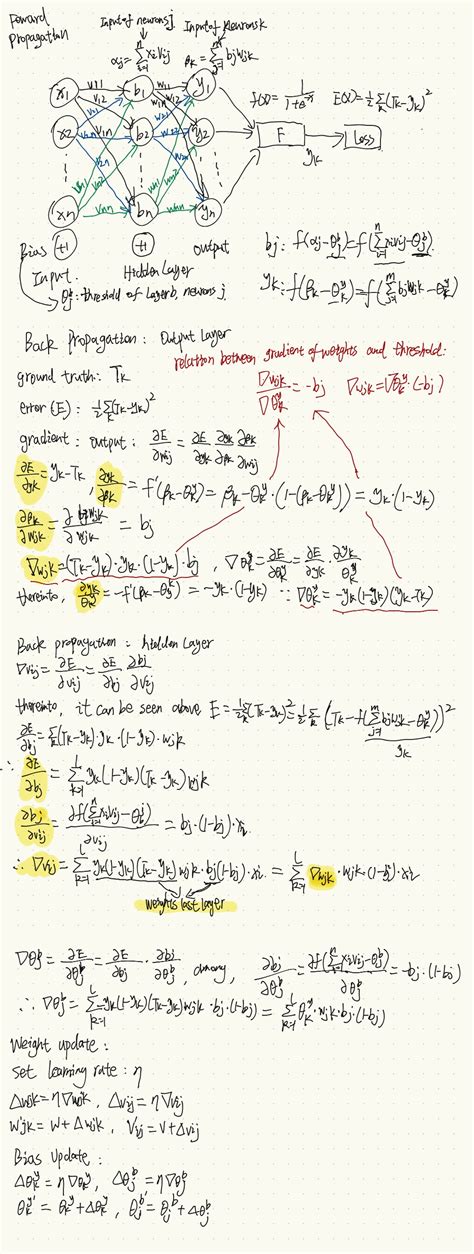 Foward Propagation
Input of neurons j
Input of neurons k
αj = Σ_{i=1}^{n} xi vij
βk = Σ_{j=1}^{m} bj wjk
x1 v11 b1 w11 y1
v1n
v21
x2 v22 b2 w22 y2
v2n
xn vnn bn wnn yn
vn1
vn2
f(x) = 1/(1+e^-x)
E(x) = ½ Σ_k (Tk-yk)^2
F
yk
Loss
Bias +1 +1
Input Hidden Layer output
θj^b : threshold of Layer b, neurons j.
bj : f(αj-θj^b) = f(Σ_{i=1}^{n} xi vij - θj^b)
yk : f(βk-θk^y) = f(Σ_{j=1}^{m} bj wjk - θk^y)
Back Propagation : Output Layer
relation between gradient of weights and threshold:
ground truth : Tk
∇wjk/∇θk^y = -bj ∇wjk = ∇θk^y (-bj)
error (E) : ½ Σ_k (Tk-yk)^2
gradient : output : ∂E/∂wij = ∂E/∂yk ∂yk/∂βk ∂βk/∂wij
∂E/∂yk = yk-Tk , ∂yk/∂βk = f'(βk-θk^y) = βk-θk^y · (1-(βk-θk^y)) = yk · (1-yk)
∂βk/∂wjk = ∂ bj wjk/∂ wjk = bj
∇wjk = (Tk-yk) · yk · (1-yk) · bj , ∇θk^y = ∂E/∂θk^y = ∂E/∂yk · ∂yk/θk^y
thereinto, ∂yk/θk^y = -f'(βk-θk^y) = -yk · (1-yk) ∵ ∇θk^y = -yk(1-yk)(yk-Tk)
Back propagation : hidden Layer
∇vij = ∂E/∂vij = ∂E/∂bj ∂bj/∂vij
thereinto, it can be seen above E = ½ Σ_k (Tk-yk)^2 = ½ Σ_k (Tk - f(Σ_{j=1}^{m} bj wjk - θk^y))^2
yk
∂E/∂bj = Σ_k (Tk-yk) · yk · (1-yk) · wjk
∴ ∂E/∂bj = Σ_{k=1}^{L} yk(1-yk)(Tk-yk) wjk
∂bj/∂vij = ∂f(Σ_{i=1}^{n} xi vij - θj^b)/∂vij = bj · (1-bj) · xi
∴ ∇vij = Σ_{k=1}^{L} yk(1-yk)(Tk-yk) wjk · bj(1-bj) · xi = Σ_{k=1}^{L} ∇wjk · wjk · (1-bj) · xi
weights last layer
∇θj^b = ∂E/∂θj^b = ∂E/∂bj · ∂bj/∂θj^b , among, ∂bj/∂θj^b = ∂f(Σ_{i=1}^{n} xi vij - θj^b)/∂θj^b = -bj · (1-bj)
∴ ∇θj^b = Σ_{k=1}^{L} -yk(1-yk)(Tk-yk) wjk · bj · (1-bj) = Σ_{k=1}^{L} θk^y · wjk · bj · (1-bj)
Weight update :
set learning rate : η
Δwjk = η∇wjk , Δvij = η∇vij
w'jk = w + Δwjk , v'ij = v + Δvij
Bias Update :
Δθk^y = η∇θk^y , Δθj^b = η∇θj^b
θk^y' = θk^y + Δθk^y , θj^b' = θj^b + Δθj^b